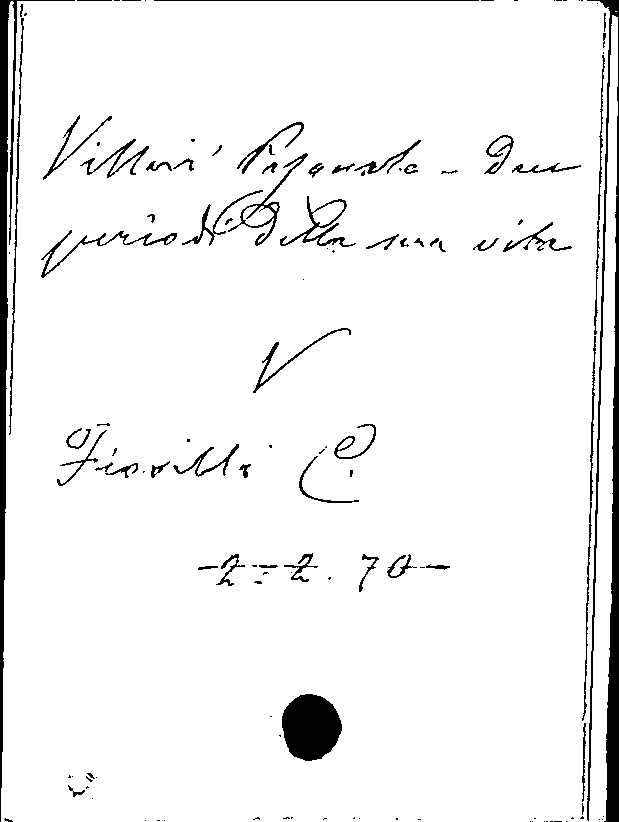 Villari' Pasquale - Due
periodi della sua vita
V
Fiorilli C.
2-2.70